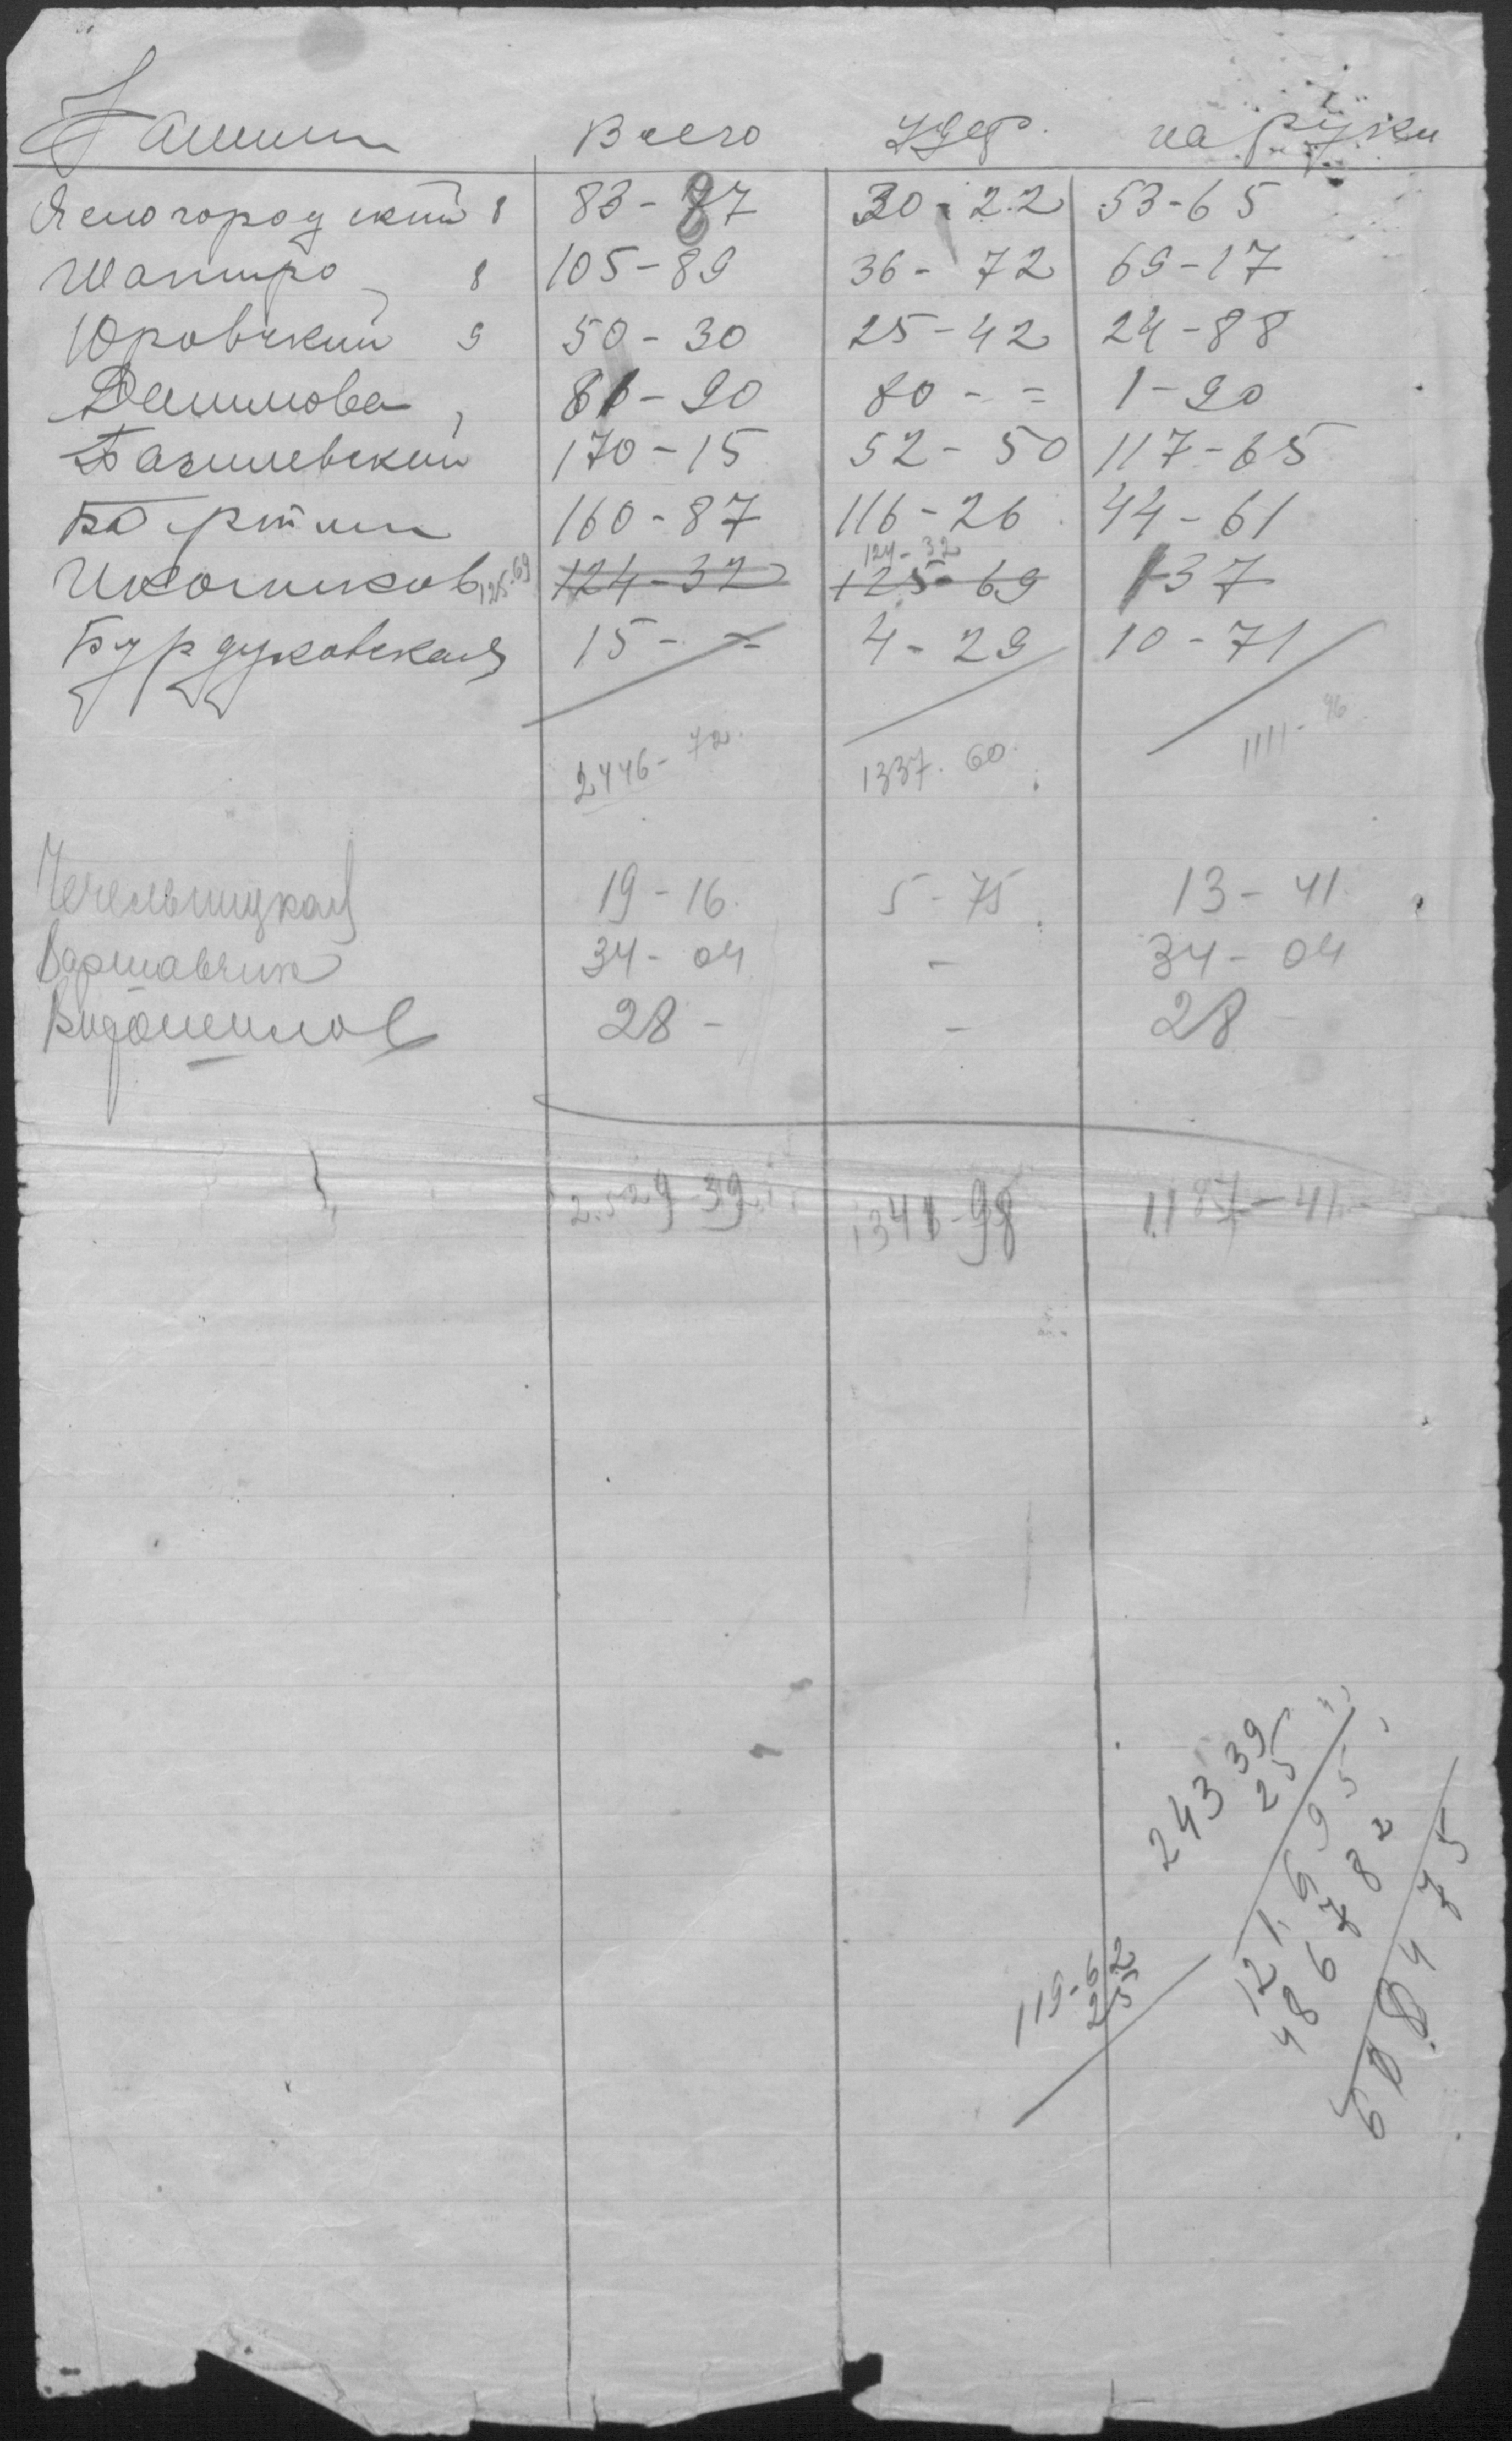 Фамилии Всего Удер. на руки
Ясногородский 8 83-87 30-22 53-65
Шапиро 8 105-89 36-72 69-17
Юровский 9 50-30 25-42 24-88
Данилова 81-90 80-= 1-90
Базилевский 170-15 52-50 117-65
Бортин 160-87 116-26 44-61
124-32
Иконников 125-69 124-32 125-69 1-37
Бурдуковская 15-= 4-29 10-71
2446-72. 1337.60. 1111-96
Чечельницкая 19-16. 5-75. 13-41.
Варшавчик 34-04 - 34-04
28- - 28-
2.529-39 1341-98 1187-41
243 39
25
121.695
48678
608475
119-62
25